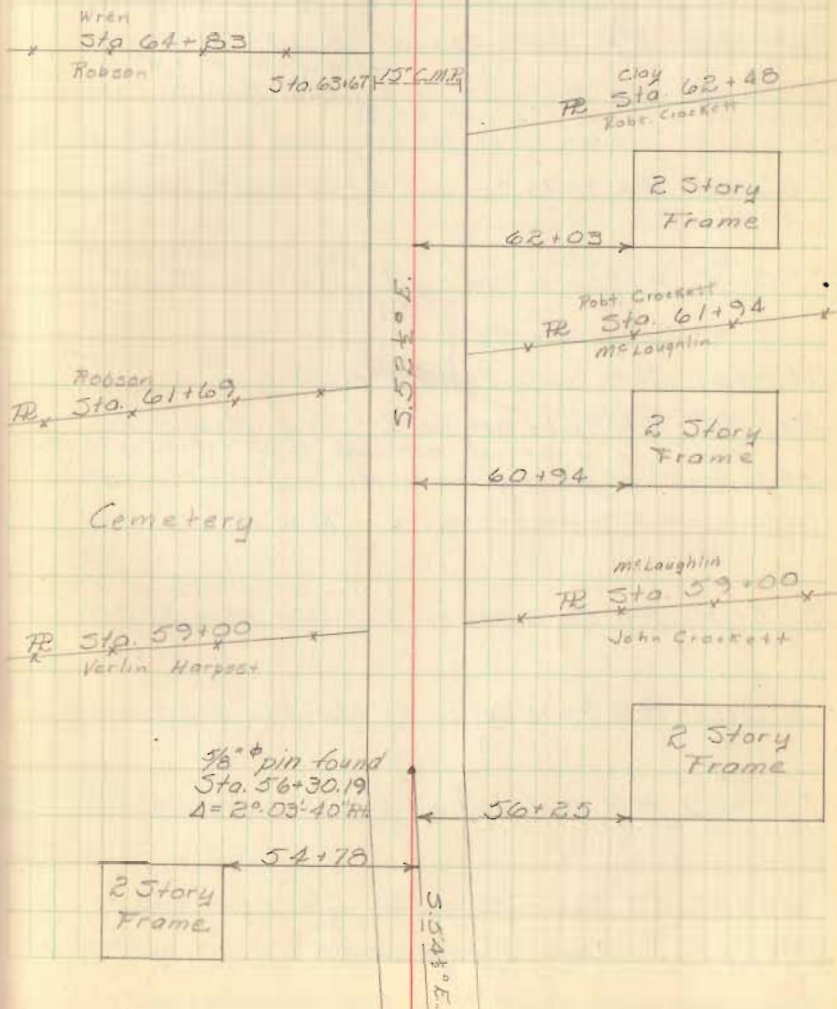 Wren
Sta 64+83
Robson
Sta. 63+67 15" C.M.P.
Clay
PL Sta. 62+48
Robt. Crockett
2 Story
Frame
62+03
S.52½°E.
Robt. Crockett
PL Sta. 61+94
McLaughlin
Robson
PL Sta. 61+69
2 Story
Frame
60+94
Cemetery
McLaughlin
PL Sta. 59+00
John Crockett
PL Sta. 59+00
Verlin Harpest
2 Story
Frame
5/8" φ pin found
Sta. 56+30.19
Δ=2°-03'-40"Rt.
56+25
54+78
2 Story
Frame
S.54½°E.